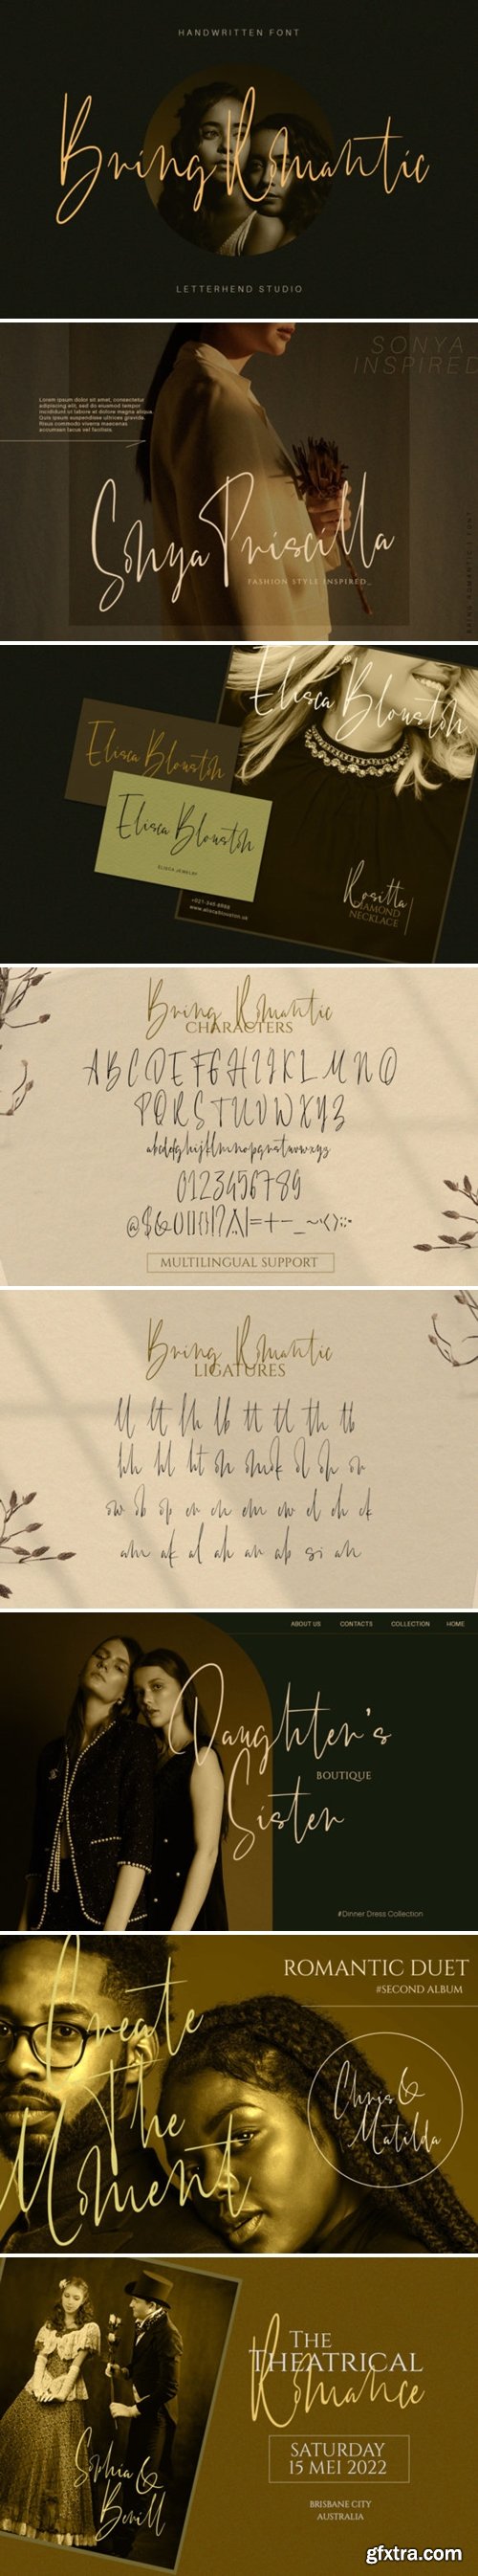 HANDWRITTEN FONT
Bring Romantic
LETTERHEND STUDIO
SONYA
INSPIRED
Lorem ipsum dolor sit amet, consectetur
adipiscing elit, sed do eiusmod tempor
incididunt ut labore et dolore magna aliqua.
Quis ipsum suspendisse ultrices gravida.
Risus commodo viverra maecenas
accumsan lacus vel facilisis.
Sonya Priscilla
FASHION STYLE INSPIRED_
BRING ROMANTIC | FONT
Elisca Blouston
Elisca Blouston
Elisca Blouston
ELISCA JEWELRY
+021-345-6888
www.eliscablouston.us
Rositta
DIAMOND
NECKLACE
Bring Romantic
CHARACTERS
A B C D E F G H I J K L M N O
P Q R S T U V W X Y Z
abcdefghijklmnopqrstuvwxyz
0123456789
MULTILINGUAL SUPPORT
Bring Romantic
LIGATURES
ABOUT US CONTACTS COLLECTION HOME
Daughter's
BOUTIQUE
Sister
#Dinner Dress Collection
Create
The
Moment
ROMANTIC DUET
#SECOND ALBUM
Chris &
Matilda
THE
THEATRICAL
Romance
SATURDAY
15 MEI 2022
BRISBANE CITY
AUSTRALIA
Sophia &
Bevill
gfxtra.com